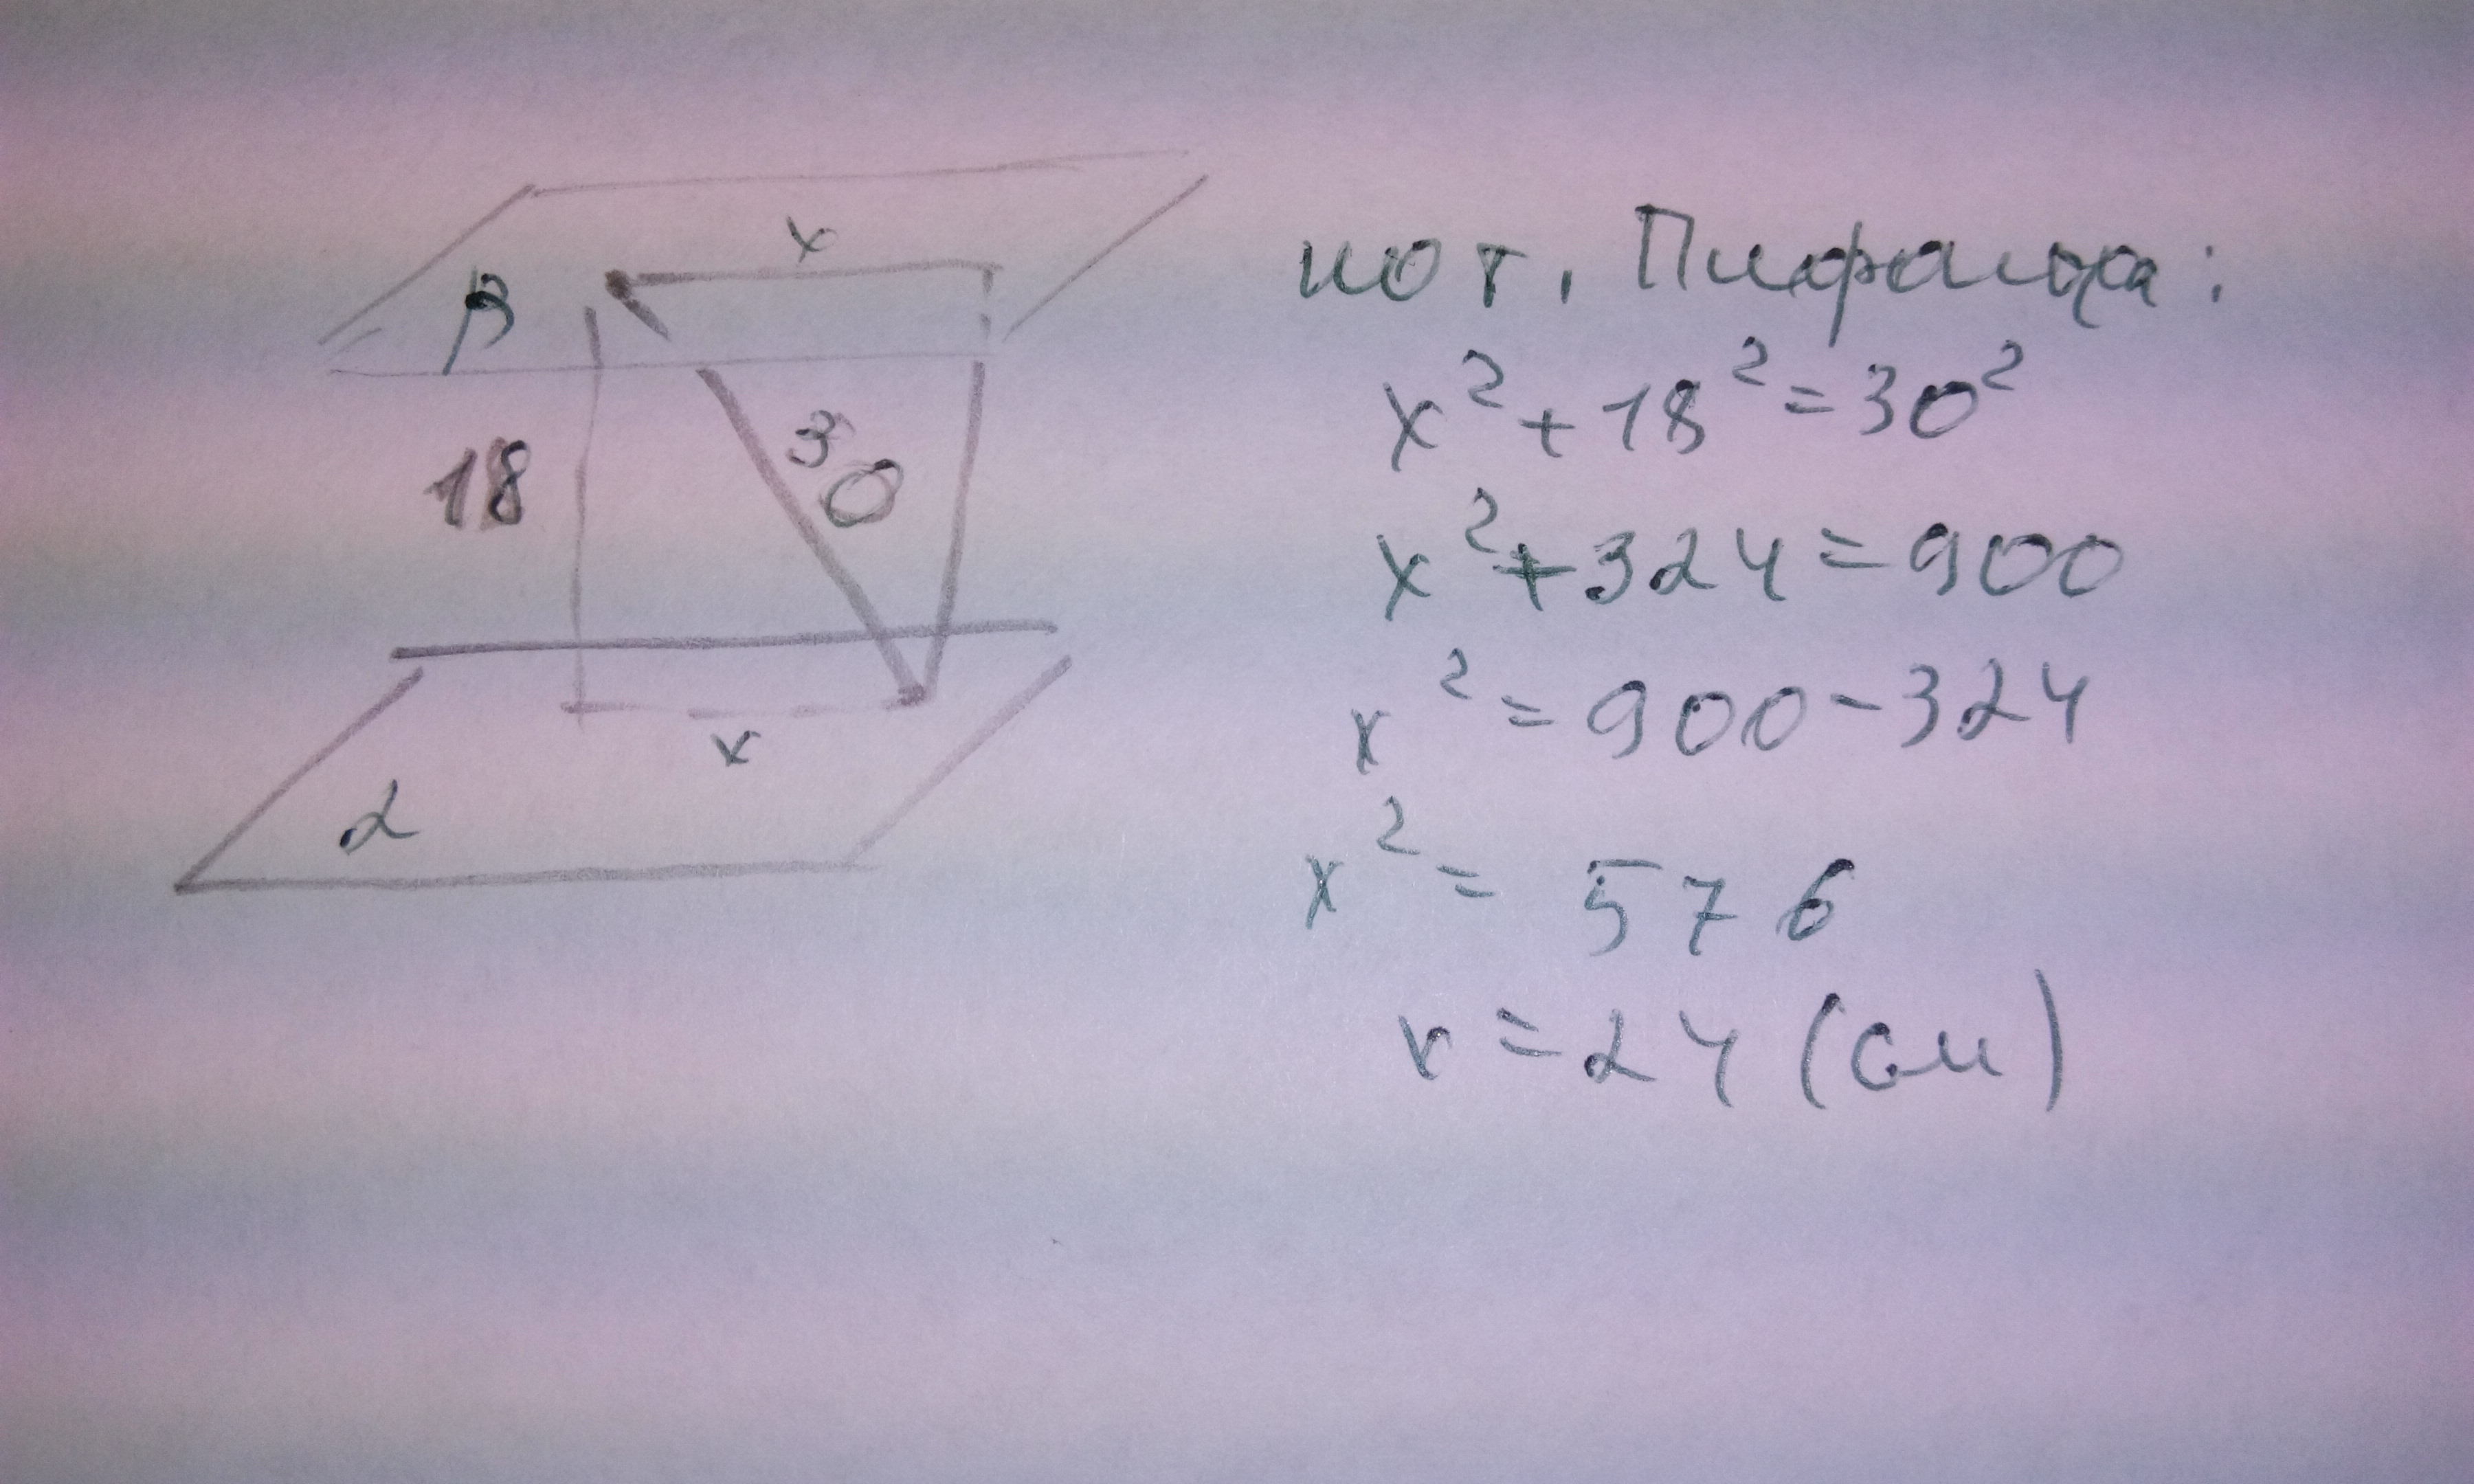 x
β
18
30
x
α
по т. Пифагора:
x² + 18² = 30²
x² + 324 = 900
x² = 900 - 324
x² = 576
x = 24 (см)